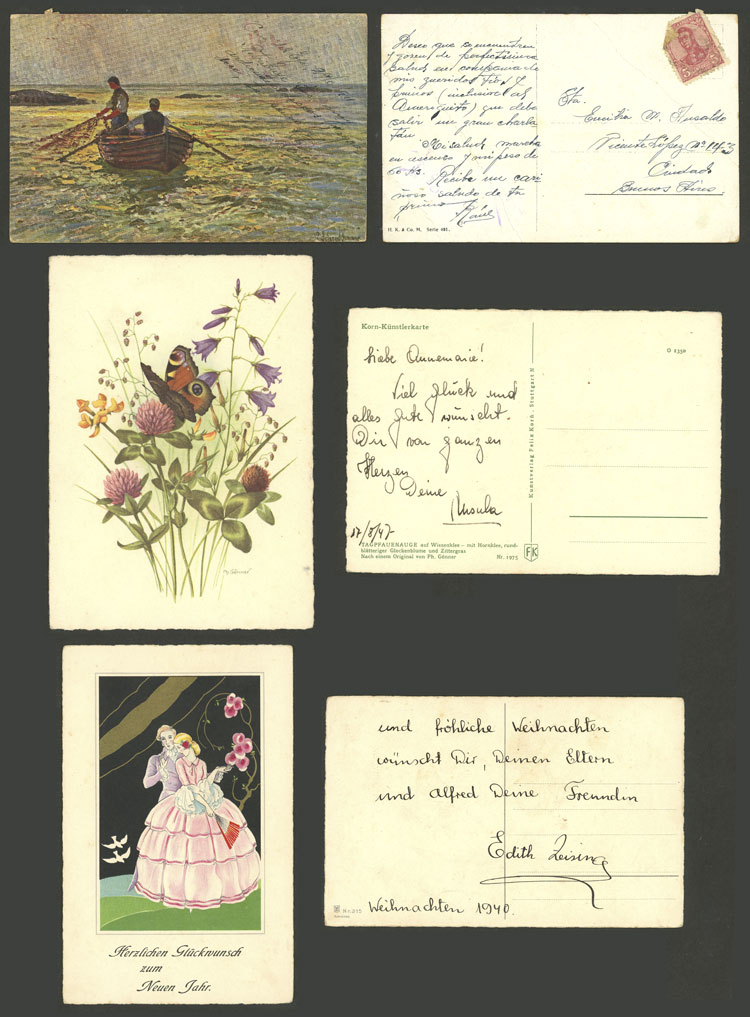 Deseo que se encuentren
y gocen de perfectísima
salud en compañía de
mis queridos tíos y
(inclusive al
Amerguito) que debe
salir un gran charla
tán.
Mi salud marcha
en ascenso y mi peso de
60 Ks. Reciba un cari
ñoso saludo de tu
primo
Raúl
H. K. & Co. M. Serie
5
Sta.
Emilia M.
Vicente López Nº
Ciudad
Buenos Aires
Ph. Gönner
Korn-Künstlerkarte
O 1350
Liebe Annemarie!
Viel Glück und
alles Gute wünscht
Dir von ganzen
Herzen
Deine
Ursula
17/8/47
TAGPFAUENAUGE auf Wiesenklee – mit Hornklee, rund-
blätteriger Glockenblume und Zittergras
Nach einem Original von Ph. Gönner Nr. 1975
FK
Kunstverlag Felix Korn · Stuttgart N
Herzlichen Glückwunsch
zum
Neuen Jahr.
und fröhliche Weihnachten
wünscht Dir, Deinen Eltern
und Alfred Deine Freundin
Edith Zeising
Weihnachten 1940.